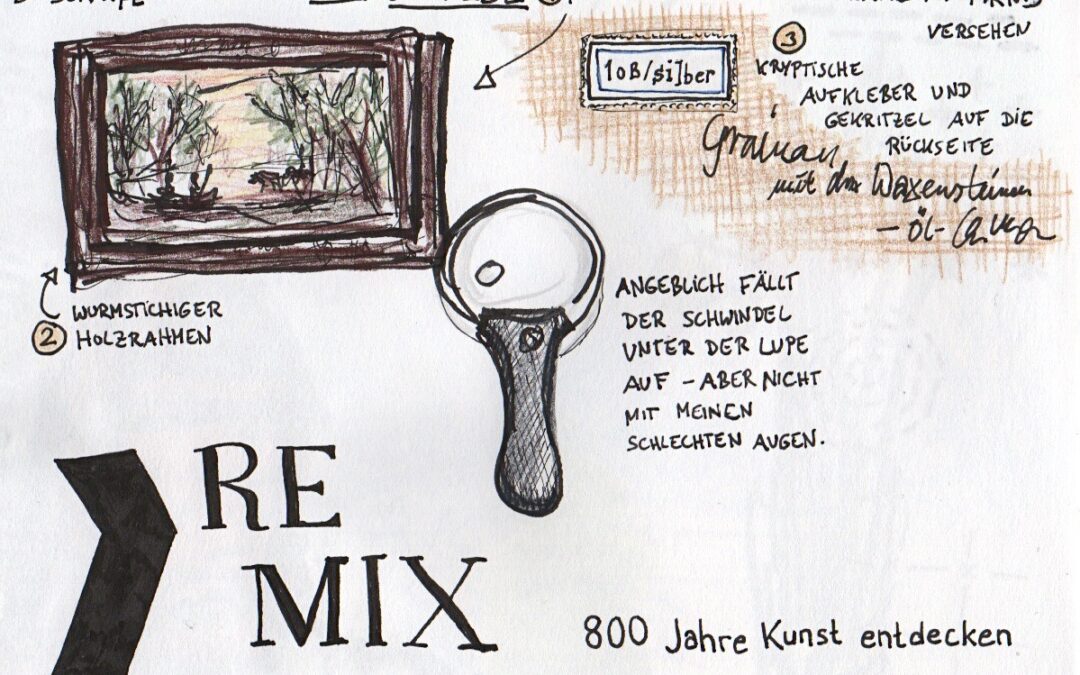 VERSEHEN
3
KRYPTISCHE
AUFKLEBER UND
GEKRITZEL AUF DIE
RÜCKSEITE
108/silber
Grainau,
mit den Waxensteinen
-öl-
2
WURMSTICHIGER
HOLZRAHMEN
ANGEBLICH FÄLLT
DER SCHWINDEL
UNTER DER LUPE
AUF - ABER NICHT
MIT MEINEN
SCHLECHTEN AUGEN.
RE
MIX
800 Jahre Kunst entdecken